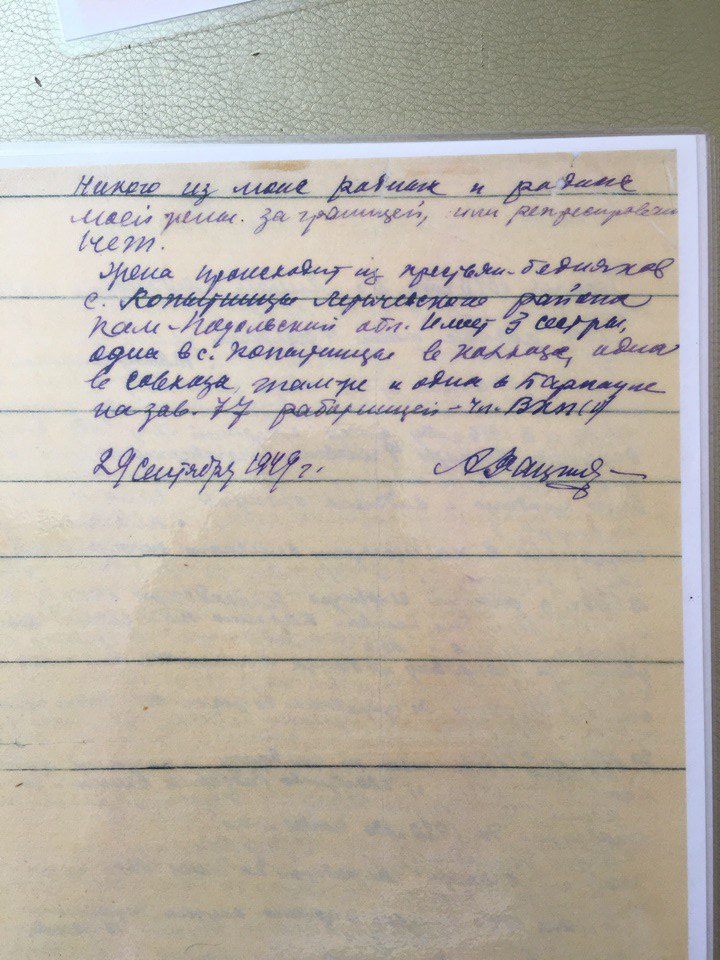 Никого из моих родных и родных
моей жены за границей, или репрессированы
нет.
Жена происходит из крестьян-бедняков
с. Копытинцы Летичевского района
Кам-Подольский обл. Имеет 3 сестры,
одна в с. Копытинцы в колхозе, одна
в совхозе, там-же и одна в Барнауле
на зав. 77 работницей - чл. ВКП(б)
29 сентября 1949 г.